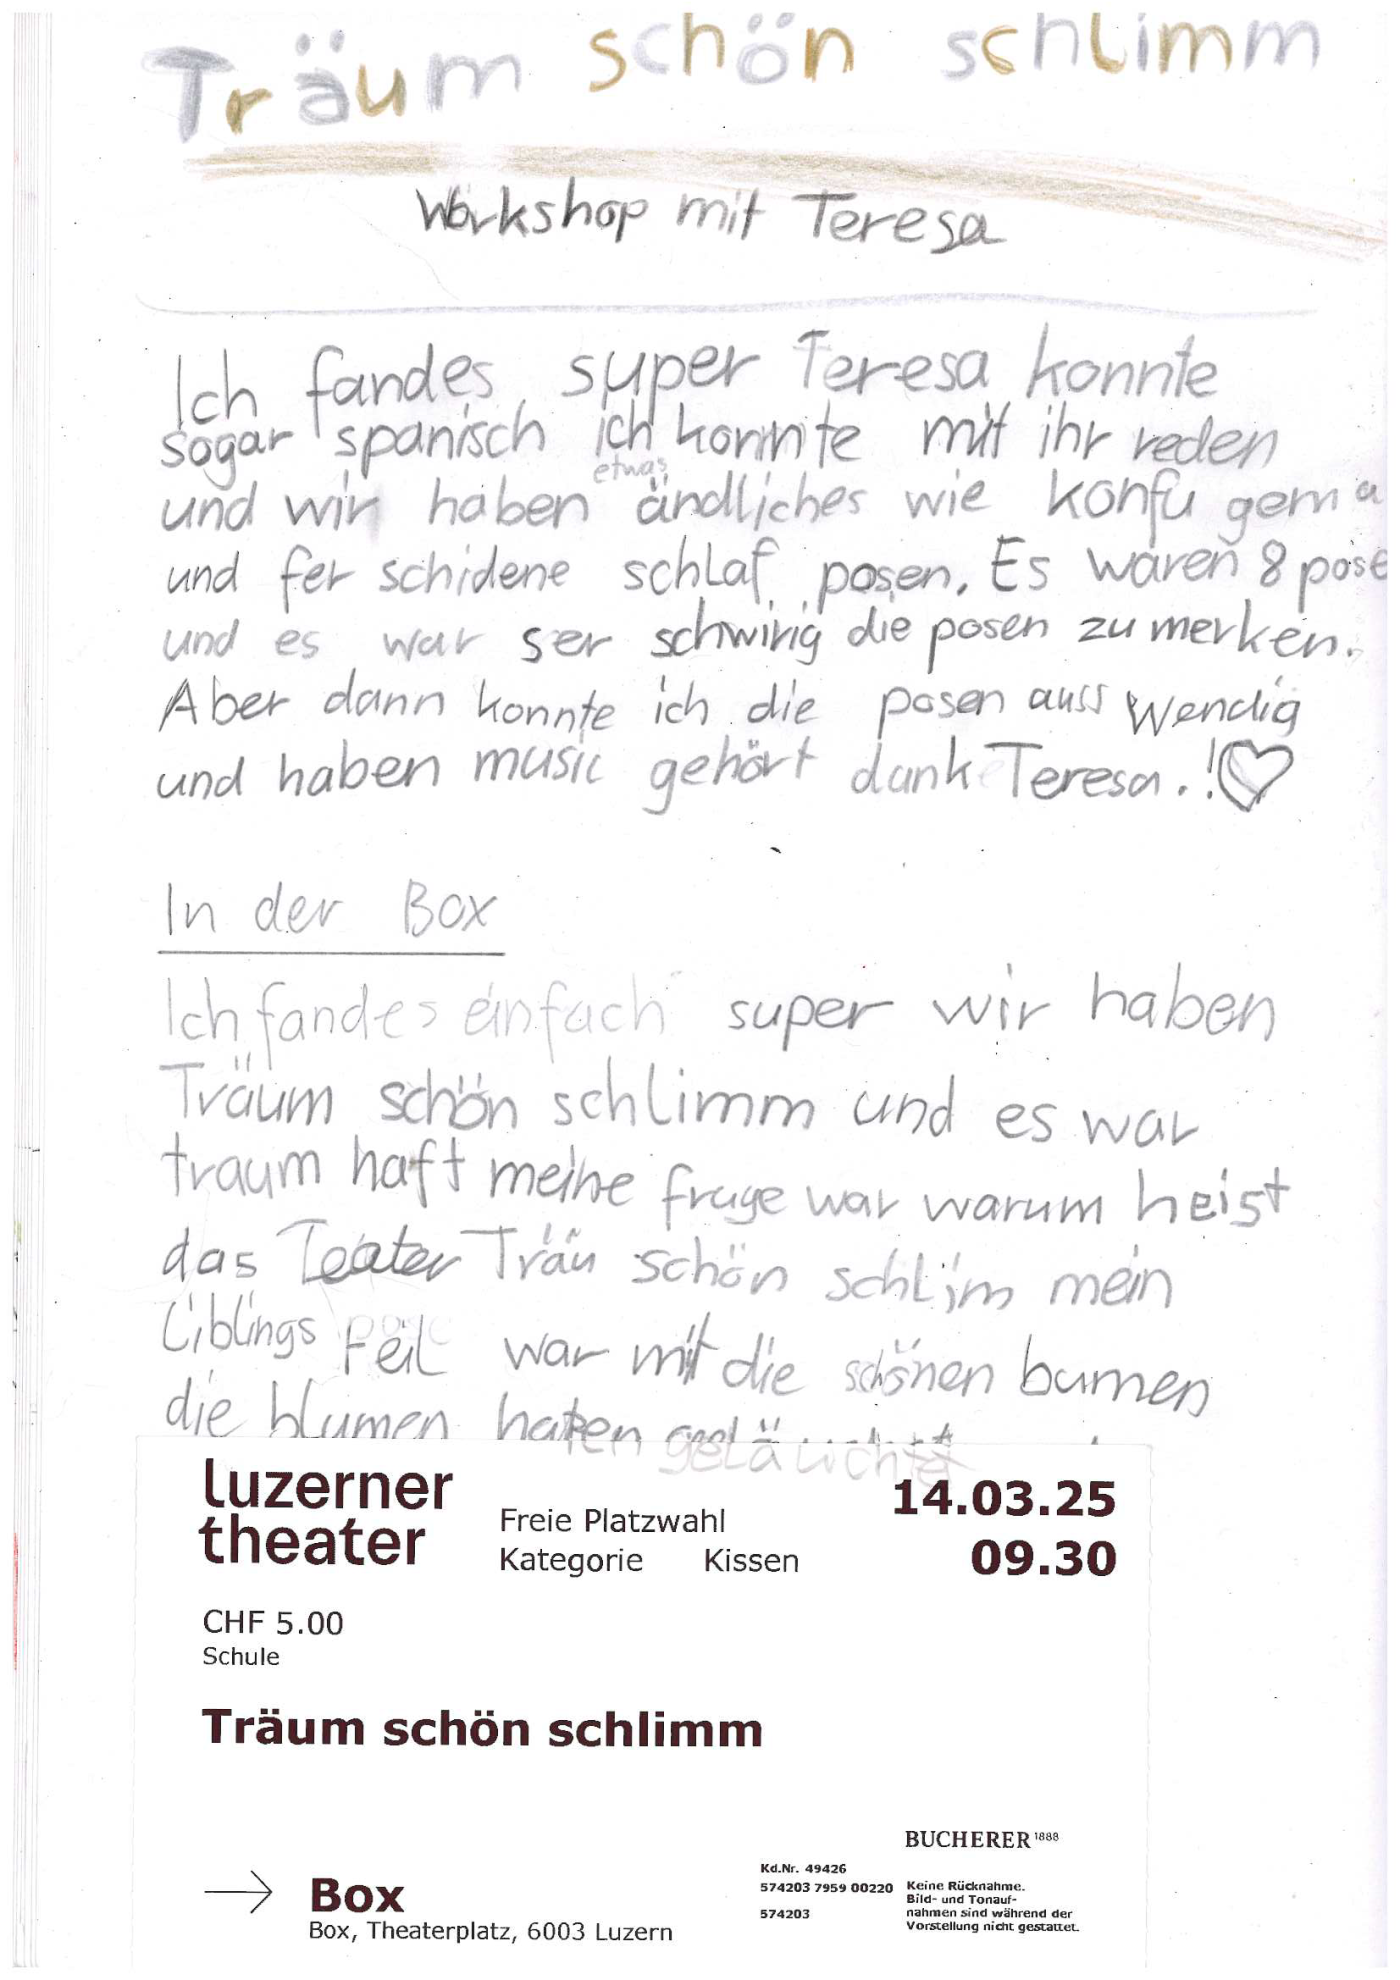 Träum schön schlimm
Workshop mit Teresa
Ich fandes super Teresa konnte
sogar spanisch ich konnte mit ihr reden
etwas
und wir haben ändliches wie konfu gema
und fer schidene schlaf posen. Es waren 8 pose
und es war ser schwirig die posen zu merken.
Aber dann konnte ich die posen auss wendig
und haben music gehört dank Teresa.!
In der Box
Ich fandes einfach super wir haben
Träum schön schlimm und es war
traum haft meine fruge war warum heist
das Teater Träu schön schlim mein
liblings teil war mit die schönen bumen
die blumen haten geläuchtet
luzerner
theater
Freie Platzwahl
Kategorie Kissen
14.03.25
09.30
CHF 5.00
Schule
Träum schön schlimm
BUCHERER 1888
Box
Box, Theaterplatz, 6003 Luzern
Kd.Nr. 49426
574203 7959 00220
574203
Keine Rücknahme.
Bild- und Tonauf-
nahmen sind während der
Vorstellung nicht gestattet.